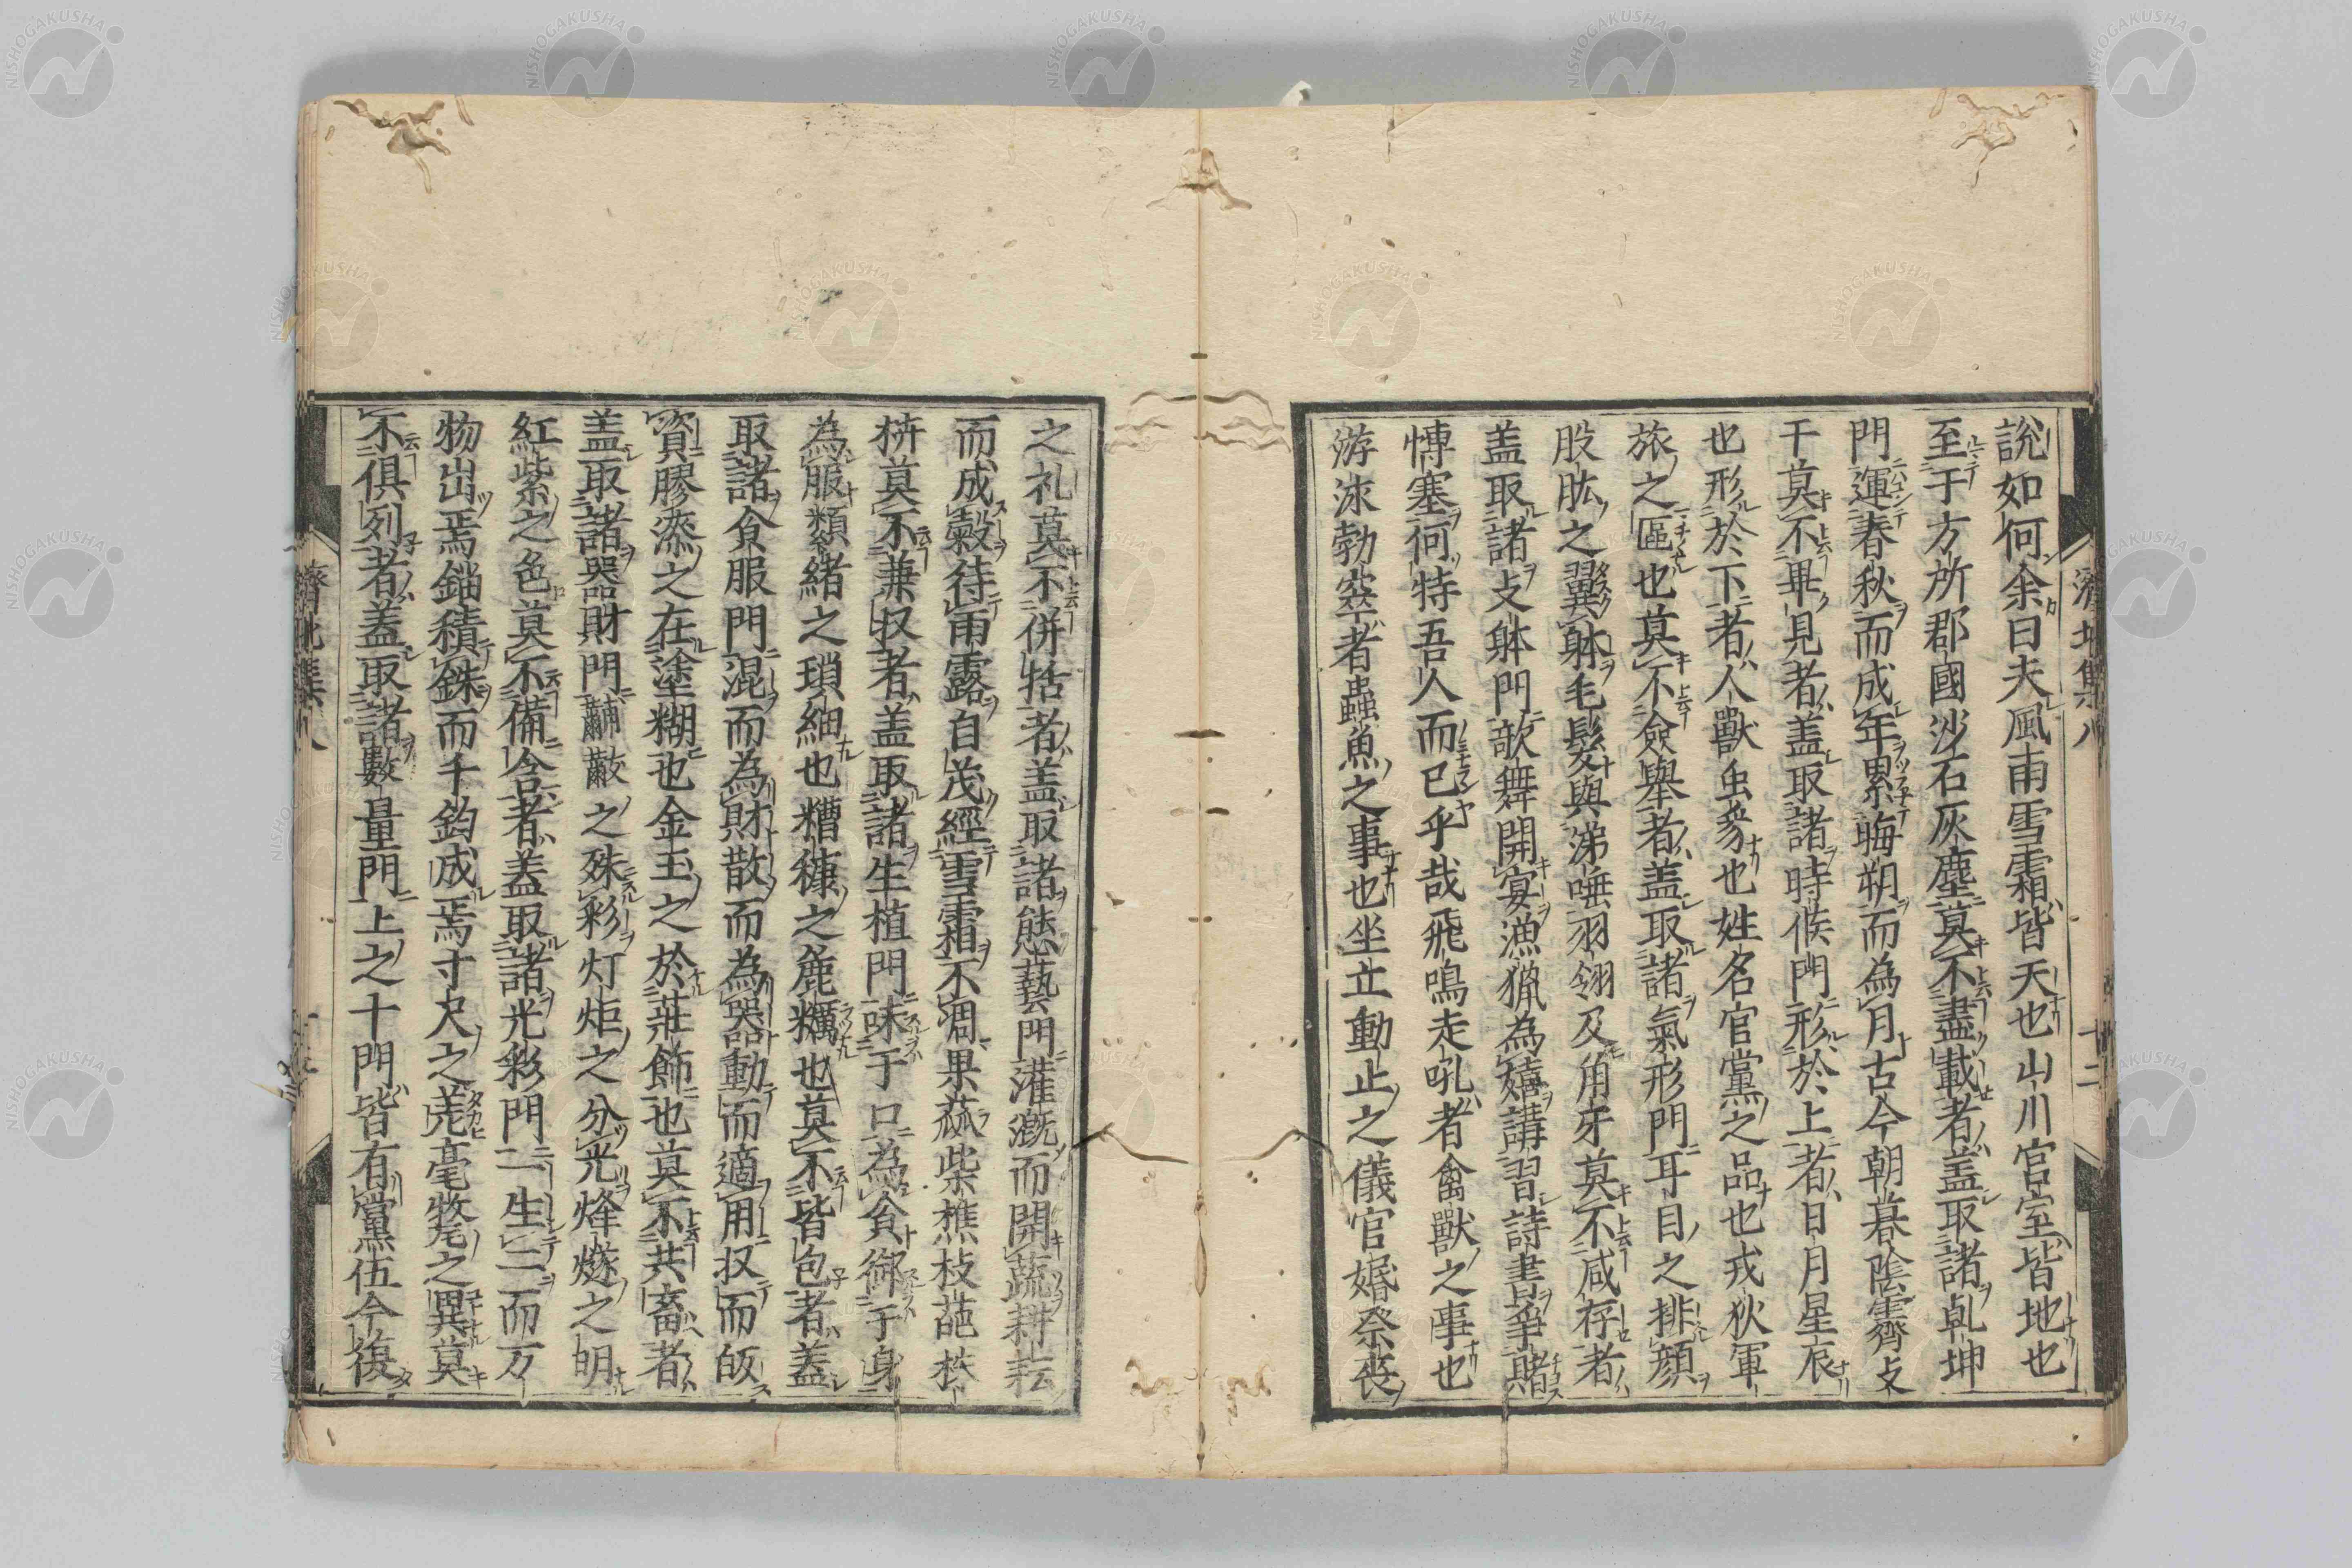 說如何余曰夫風雨雪霜皆天也山川官室皆地也
至于方所郡國沙石灰塵莫不盡載者盖取諸乹坤
門運春秋而成年累晦朔而為月古今朝暮陰霽攴
干莫不畢見者盖取諸時候門形於上者日月星辰
也形於下者人獸虫豸也姓名官黨之品也戎狄軍
旅之區也莫不僉舉者盖取諸氣形門耳目之排顔
股肱之翼躰毛髮與涕唾羽翎及角牙莫不咸存者
盖取諸攴躰門歌舞開宴漁獵為嬉講習詩書爭賭
愽塞何特吾人而已乎哉飛鳴走吼者禽獸之事也
游泳勃窣者蟲魚之事也坐立動止之儀官婚祭喪
之礼莫不併括者盖取諸態藝門灌漑而開蔬耕耘
而成穀待雨露自茂經雪霜不凋果蓏柴樵枝葩株
枿莫不兼収者盖取諸生植門味于口為食御于身
為服類緒之瑣細也糟糠之麁糲也莫不皆包者盖
取諸食服門混而為財散而為器動而適用収而皈
資膠漆之在塗糊也金玉之於莊飾也莫不共畜者
盖取諸器財門黼黻之殊彩灯炬之分光烽燧之明
紅紫之色莫不備含者盖取諸光彩門一生二而万
物出焉錙積銖而千鈞成焉寸尺之差毫犛之異莫
不俱列者盖取諸數量門上之十門皆有黨伍今復
濟北集八
十二
濟北集八
NISHOGAKUSHA